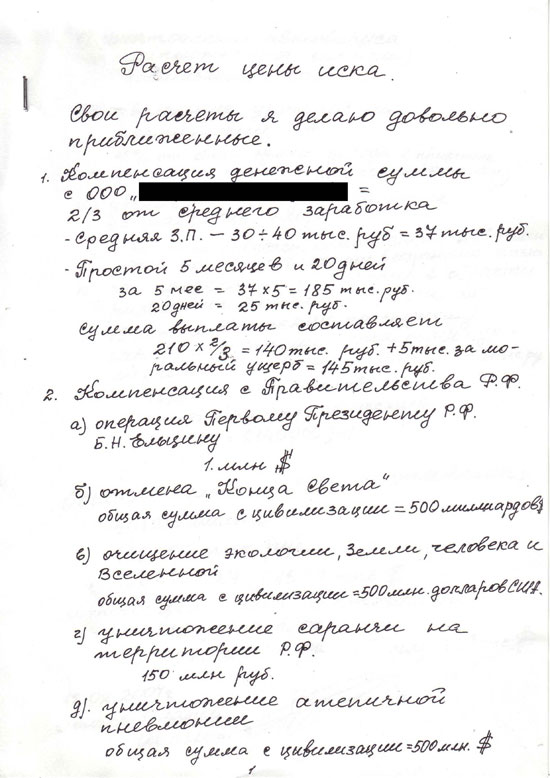 Расчет цены иска.
Свои расчеты я делаю довольно
приближенные.
1. Компенсация денежной суммы
с ООО „ =
2/3 от среднего заработка
- Средняя З.П. – 30÷40 тыс. руб = 37 тыс. руб.
- Простой 5 месяцев и 20 дней
за 5 мес = 37×5 = 185 тыс. руб.
20 дней = 25 тыс. руб.
Сумма выплаты составляет
210 × 2/3 = 140 тыс. руб. + 5 тыс. за мо-
ральный ущерб = 145 тыс. руб.
2. Компенсация с Правительства Р.Ф.
а) операция Первому Президенту Р.Ф.
Б.Н. Ельцину
1. млн $
б) отмена „Конца Света"
общая сумма с цивилизации = 500 миллиардов $
в) очищение экологии, Земли, человека и
Вселенной
общая сумма с цивилизации = 500 млн. долларов США.
г) уничтожение саранчи на
территории Р.Ф.
150 млн руб.
д). уничтожение атепичной
пневмонии
общая сумма с цивилизации = 500 млн. $
1